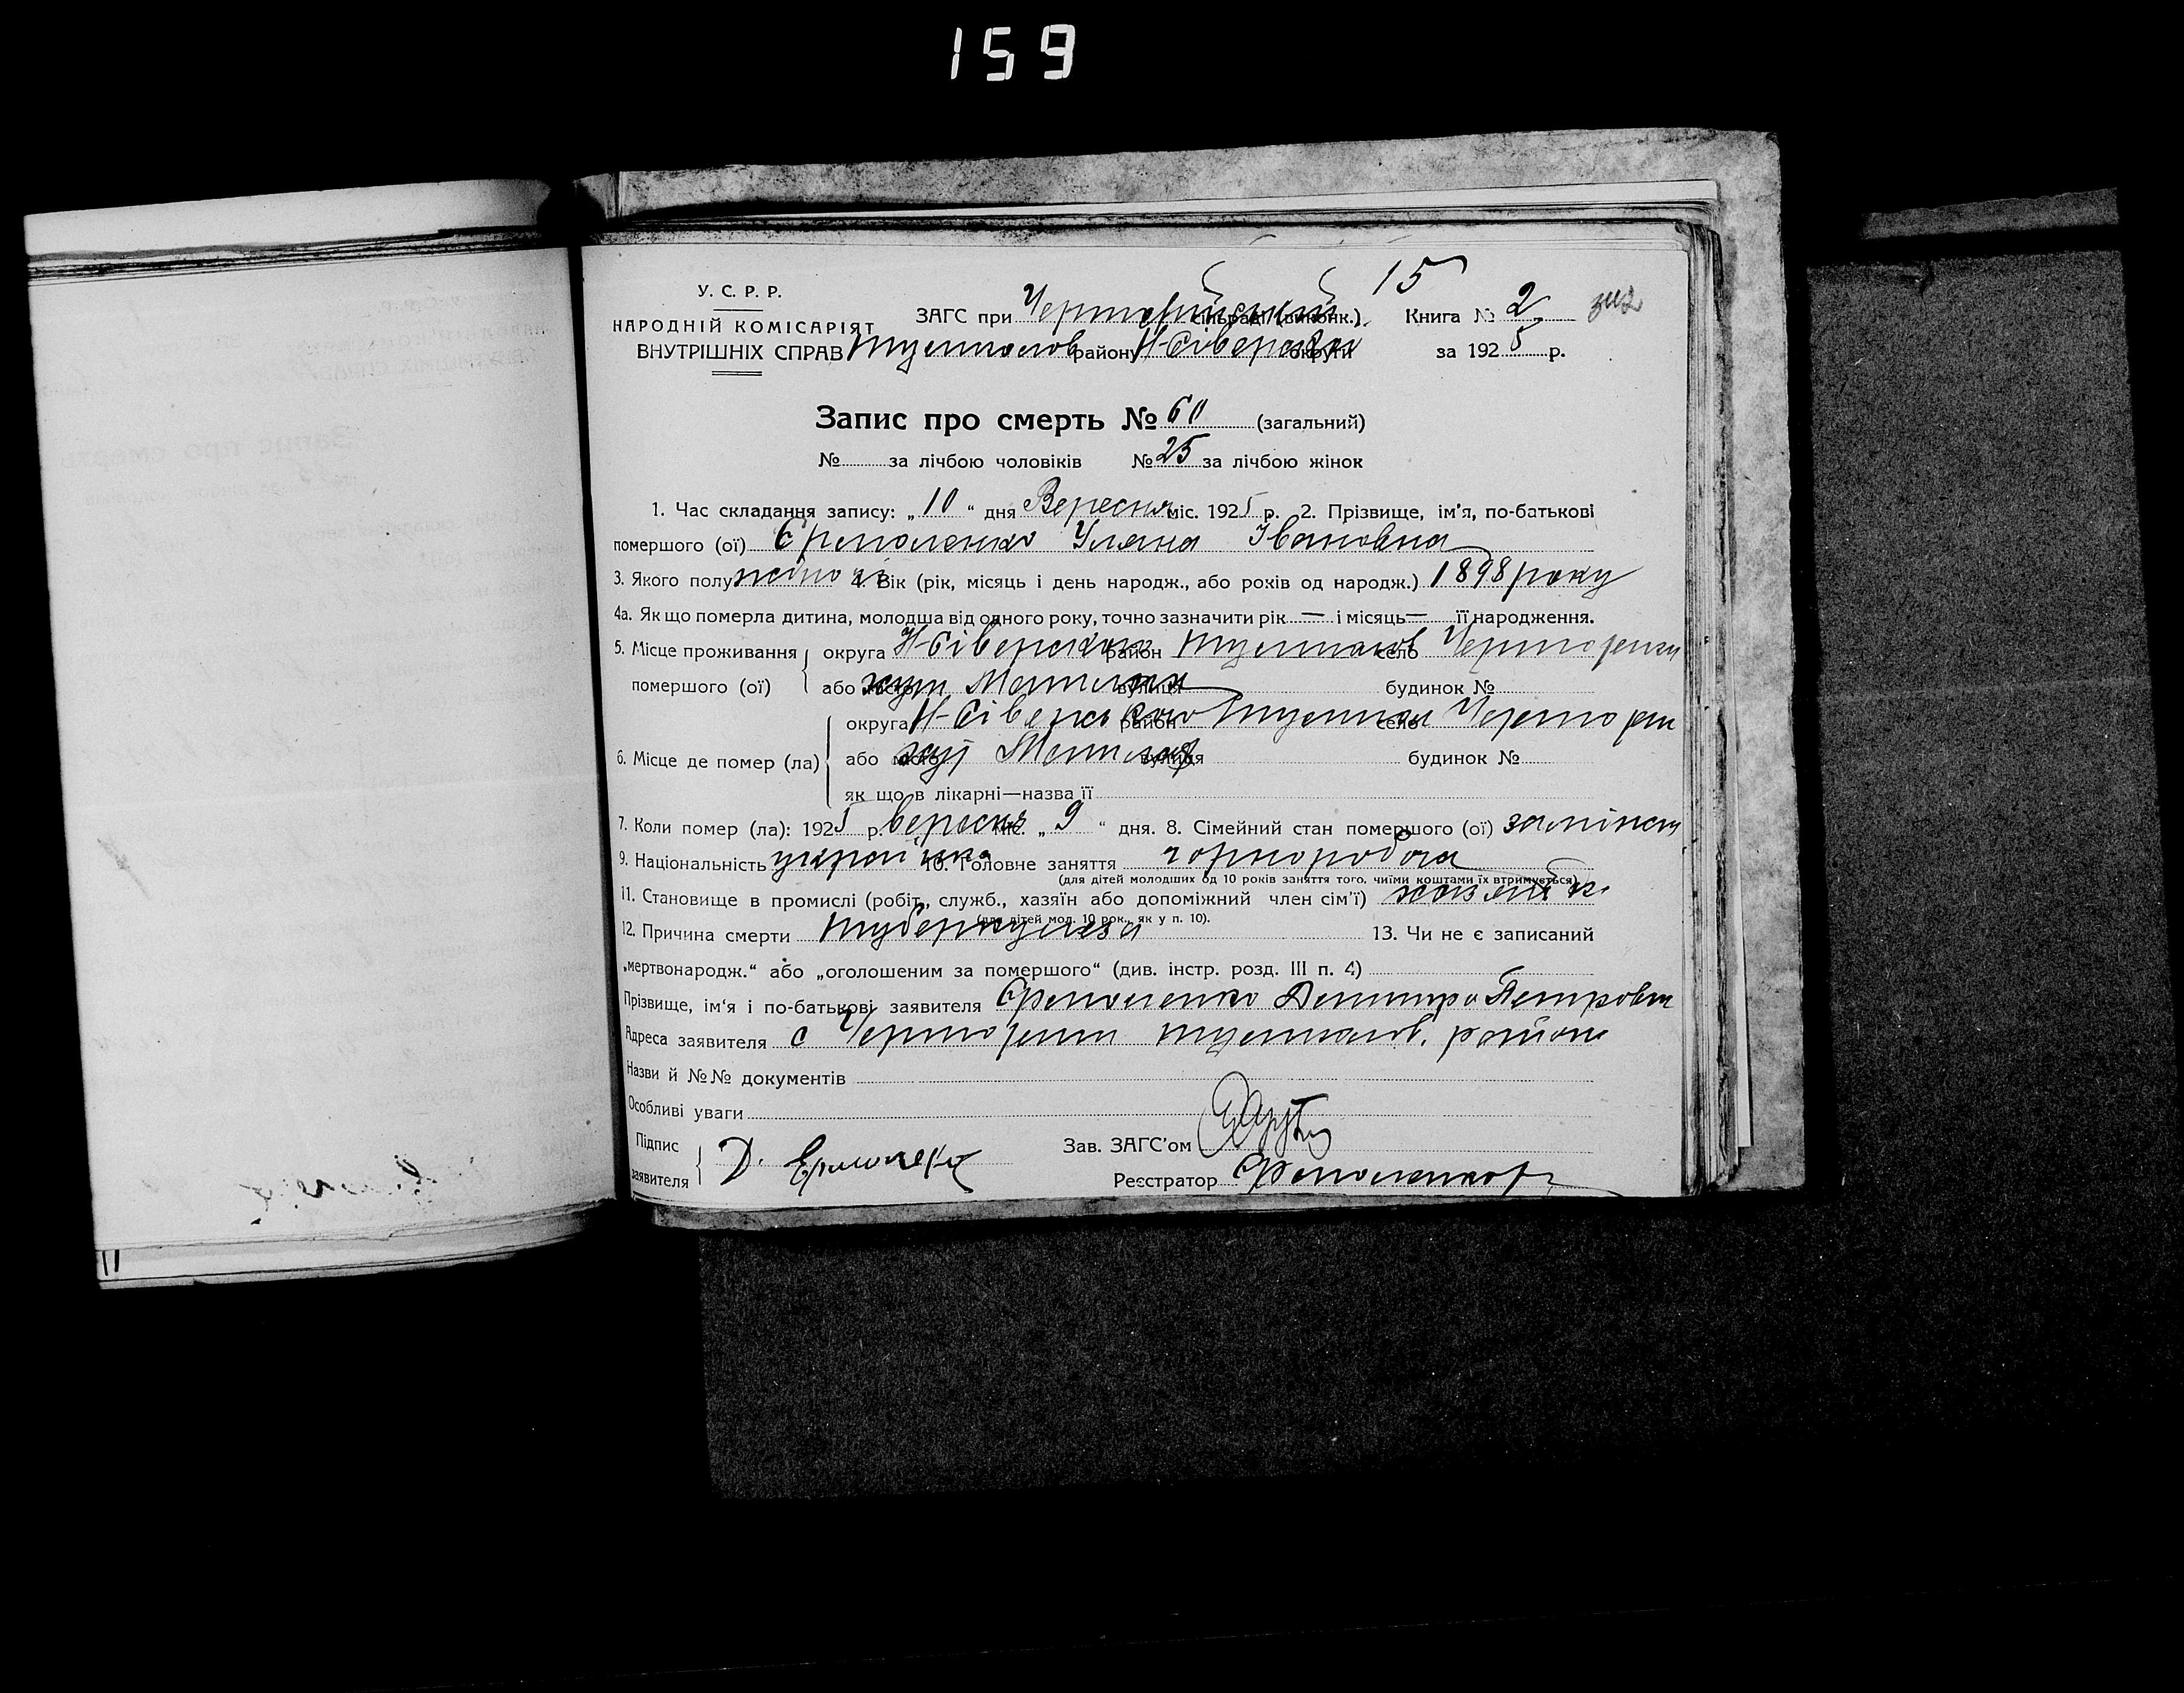 159
15
У. С. Р. Р.
НАРОДНІЙ КОМІСАРІЯТ
ВНУТРІШНІХ СПРАВ
ЗАГС при сільраді (виконк.) Книга № 2
району Н-Сіверської округи за 1925 р.
Запис про смерть № 60 (загальний)
№ за лічбою чоловіків № 25 за лічбою жінок
1. Час складання запису: „ 10 “ дня Вересня міс. 1925 р. 2. Прізвище, ім'я, по-батькові
помершого (ої) Єрмоленко Уляна Івановна
3. Якого полу жіночі 4. Вік (рік, місяць і день народж., або років од народж.) 1898 року
4а. Як що померла дитина, молодша від одного року, точно зазначити рік — і місяць — її народження.
5. Місце проживання округа Н-Сіверська район село
помершого (ої) або місто вулиця будинок №
округа Н-Сіверська район село
6. Місце де помер (ла) або місто вулиця будинок №
як що в лікарні—назва її
7. Коли помер (ла): 1925 р. вересня міс. „ 9 “ дня. 8. Сімейний стан помершого (ої)
9. Національність українка 10. Головне заняття чорноробоча
(для дітей молодших од 10 років заняття того, чиїми коштами їх втримується)
11. Становище в промислі (робіт., служб., хазяїн або допоміжний член сім'ї)
(для дітей мол. 10 рок., як у п. 10).
12. Причина смерти туберкульоз 13. Чи не є записаний
„мертвонародж.“ або „оголошеним за помершого“ (див. інстр. розд. III п. 4)
Прізвище, ім'я і по-батькові заявителя Єрмоленко Дмитро Петрович
Адреса заявителя с району
Назви й №№ документів
Особливі уваги
Підпис
заявителя Д. Ермоленко
Зав. ЗАГС'ом
Реєстратор Єрмоленко